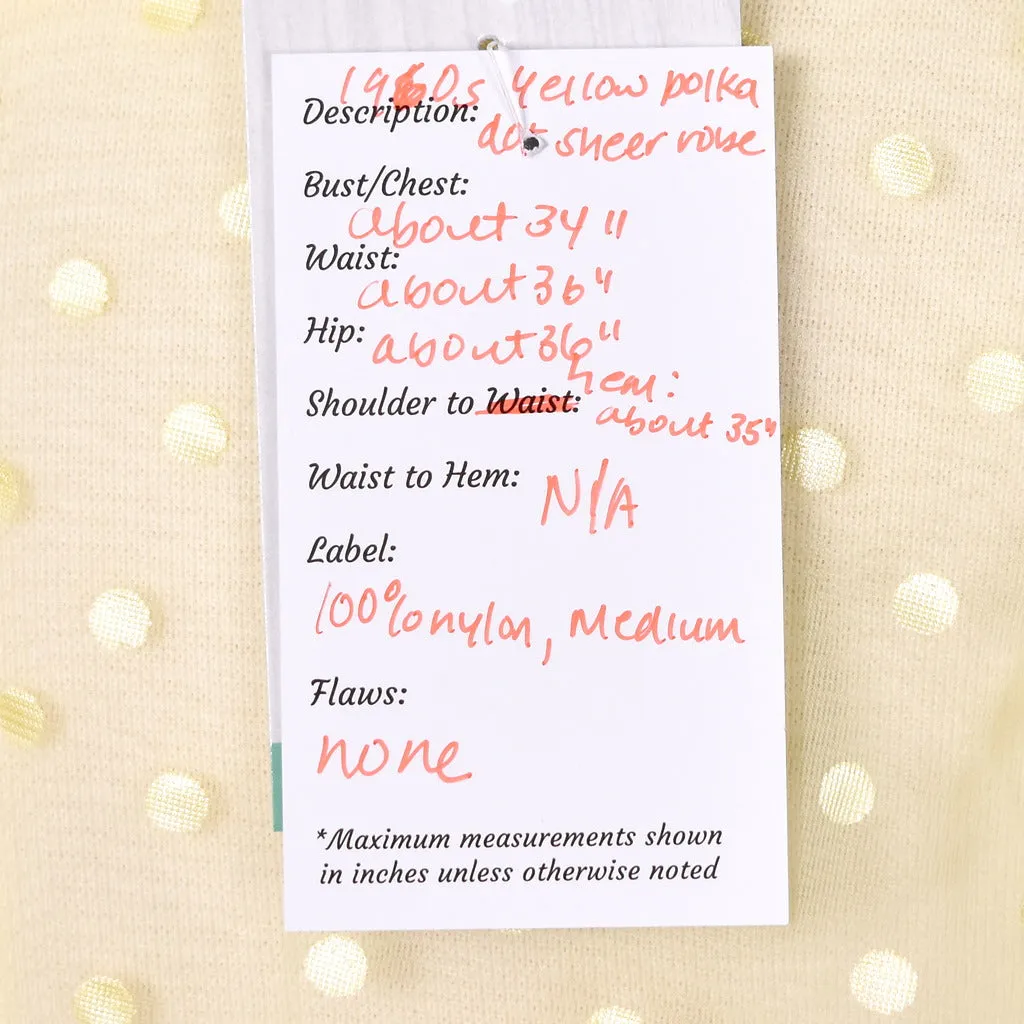 1960s yellow polka
Description:
dot sheer robe
Bust/Chest:
about 34"
Waist:
about 36"
Hip: about 36"
hem:
Shoulder to Waist:
about 35"
Waist to Hem: N/A
Label:
100% nylon, Medium
Flaws:
none
*Maximum measurements shown
in inches unless otherwise noted